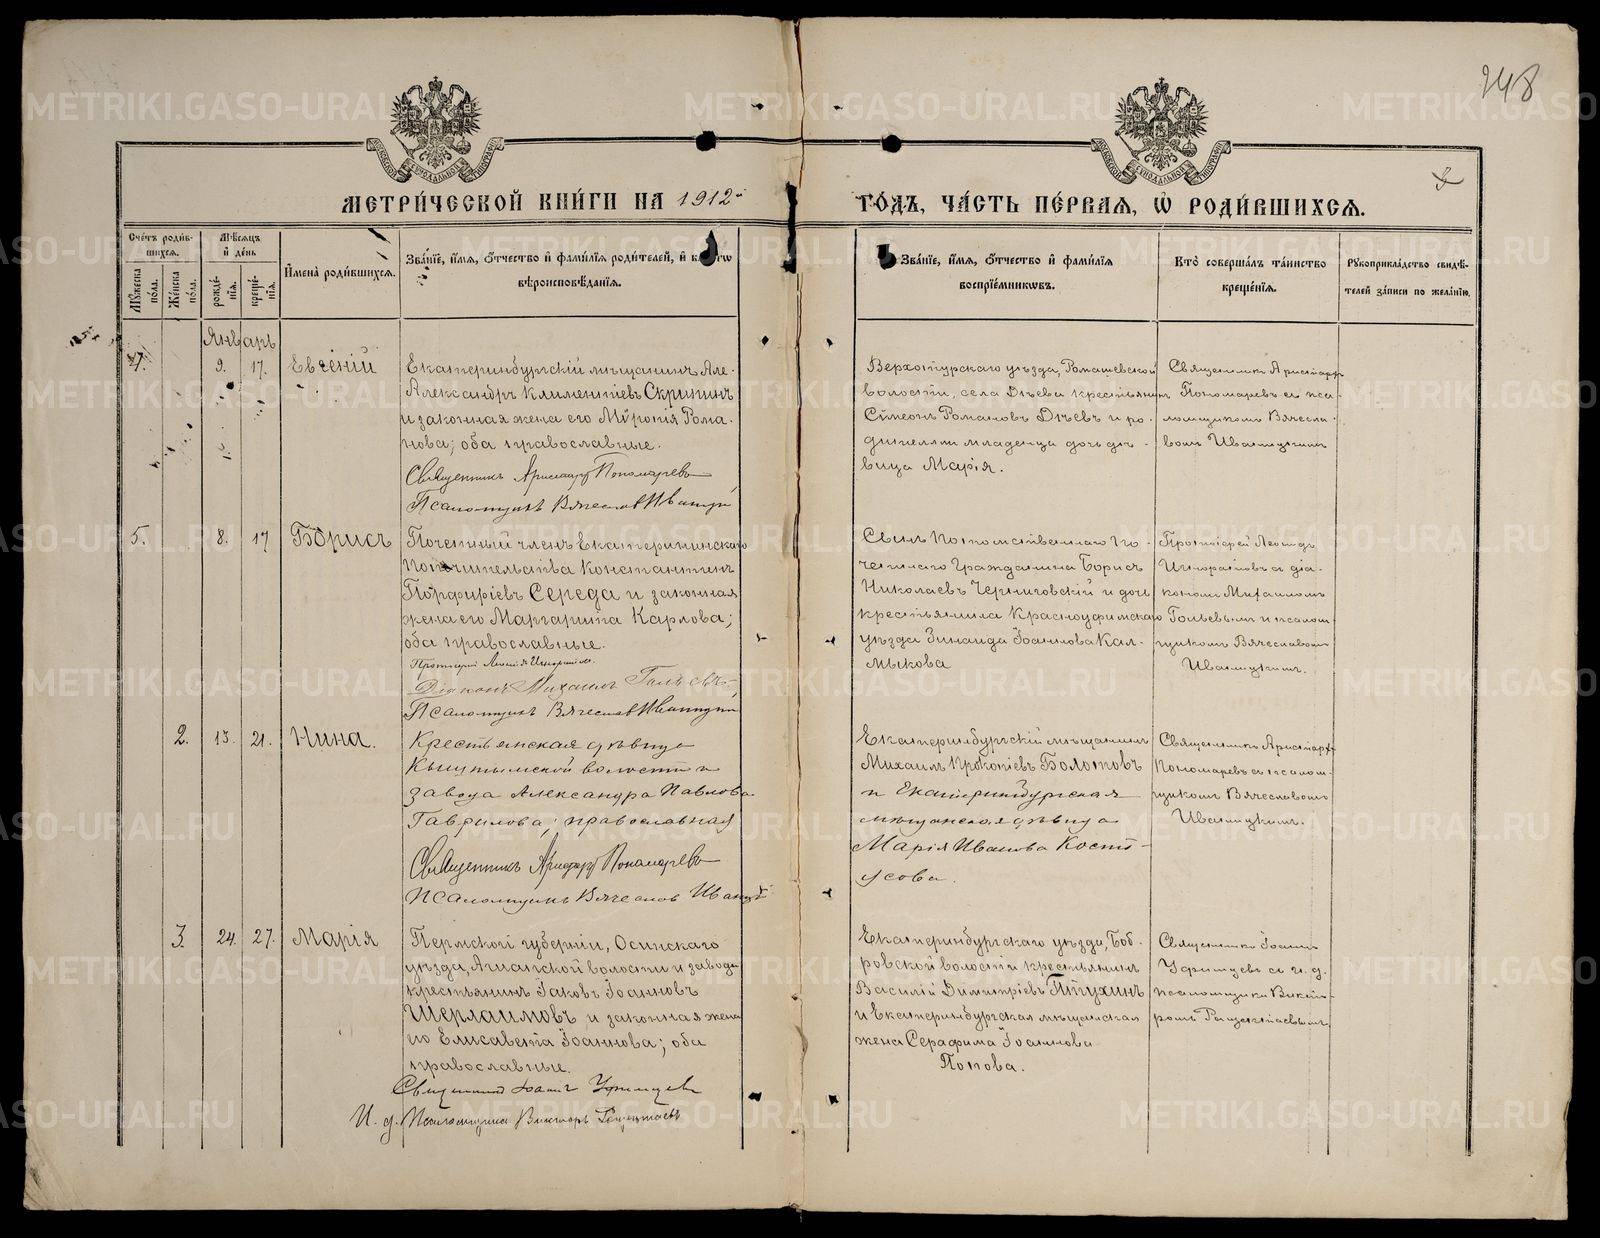 248
3
МЕТРИ́ЧЕСКОЙ КНИ́ГИ НА 1912й ГО́ДЪ, ЧА́СТЬ ПЕ́РВАЯ, Ѡ РОДИ́ВШИХСЯ.
Сче́тъ роди́в-
шихся.
Му́жеска по́ла.
Же́нска по́ла.
Мѣ́сяцъ
и де́нь
рожде́нїя.
креще́нїя.
И҆мена̀ роди́вшихся.
Зва́нїе, и҆́мя, ѻ҆́тчество и҆ фами́лїя роди́телей, и҆
вѣроисповѣ́данїя.
Зва́нїе, и҆́мя, ѻ҆́тчество и҆ фами́лїя
воспрїе́мникѡвъ.
Кто̀ соверша́лъ та́инство
креще́нїя.
Рꙋкоприкла́дство свидѣ́-
телей за́писи по жела́нїю.
Январь
4.
9.
17.
Евгеній
Екатеринбургскій мѣщанинъ Але-
Александръ Климентіевъ Скрипинъ
и законная жена его Рома-
нова; оба православные.
Священникъ Аристархъ Пономаревъ
Псаломщикъ Вячеславъ Иваницкій
Верхотурскаго уѣзда, волости, села Дѣева крестьянинъ
Сѵмеонъ Романовъ Дѣевъ и ро-
дителями младенца дочь дѣ-
вица Марія.
Священникъ Аристархъ
Пономаревъ съ пса-
ломщикомъ Вячесла-
вомъ Иваницкимъ
5.
8.
17
Борисъ
Почетный членъ Екатерининскаго
Попечительства Константинъ
Порфиріевъ Середа и законная
жена его Маргарита Карлова;
оба православные.
Протоіерей Леонидъ Игноратовъ
Діаконъ Михаилъ
Псаломщикъ Вячеславъ Иваницкій
Сынъ Потомственнаго По-
четнаго Гражданина Борисъ
Николаевъ Черниговскій и дочь
крестьянина Красноуфимскаго
уѣзда Зинаида Іоаннова Кал-
мыкова
Протоіерей Леонидъ
Игноратовъ съ діа-
кономъ Михаиломъ
и псалом-
щикомъ Вячеславомъ
Иваницкимъ.
2.
13.
21.
Нина.
Крестьянская дѣвица
Кыштымской волости и
завода Александра Павлова
Гаврилова; православная
Священникъ Аристархъ Пономаревъ
Псаломщикъ Вячеславъ Иваницкій
Екатеринбургскій мѣщанинъ
Михаилъ Прокопіевъ Болотовъ
и Екатеринбургская
мѣщанская дѣвица
Марія Иванова Кост-
усова.
Священникъ Аристархъ
Пономаревъ съ псалом-
щикомъ Вячеславомъ
Иваницкимъ.
3.
24.
27.
Марія
Пермской губерніи, Осинскаго
уѣзда, Ашапской волости и завода
крестьянинъ Іаковъ Іоанновъ
Шерлаимовъ и законная жена
его Елисавета Іоаннова; оба
православные.
Священникъ Іоаннъ Уфимцевъ
И. д. Псаломщика Викторъ
Екатеринбургскаго уѣзда, Боб-
ровской волости крестьянинъ
Василій Димитріевъ Пѣтухинъ
и Екатеринбургская мѣщанская
жена Серафима Іоаннова
Попова.
Священникъ Іоаннъ
Уфимцевъ съ и. д.
псаломщика Викто-
ромъ
METRIKI.GASO-URAL.RU